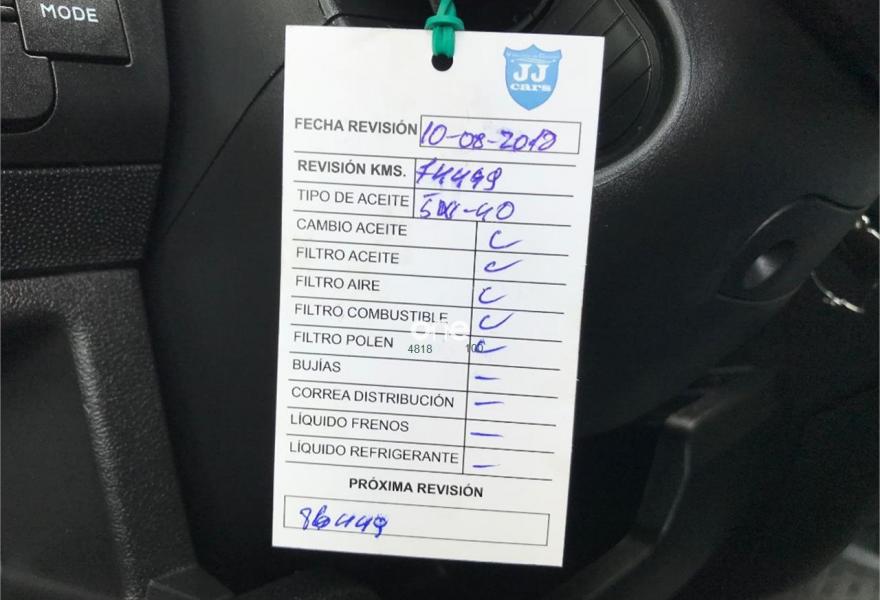 MODE
JJ
cars
FECHA REVISIÓN 10-08-2018
REVISIÓN KMS. 74449
TIPO DE ACEITE 5W-40
CAMBIO ACEITE
FILTRO ACEITE
FILTRO AIRE
FILTRO COMBUSTIBLE
one
FILTRO POLEN
4818 100
BUJÍAS —
CORREA DISTRIBUCIÓN —
LÍQUIDO FRENOS —
LÍQUIDO REFRIGERANTE —
PRÓXIMA REVISIÓN
86449